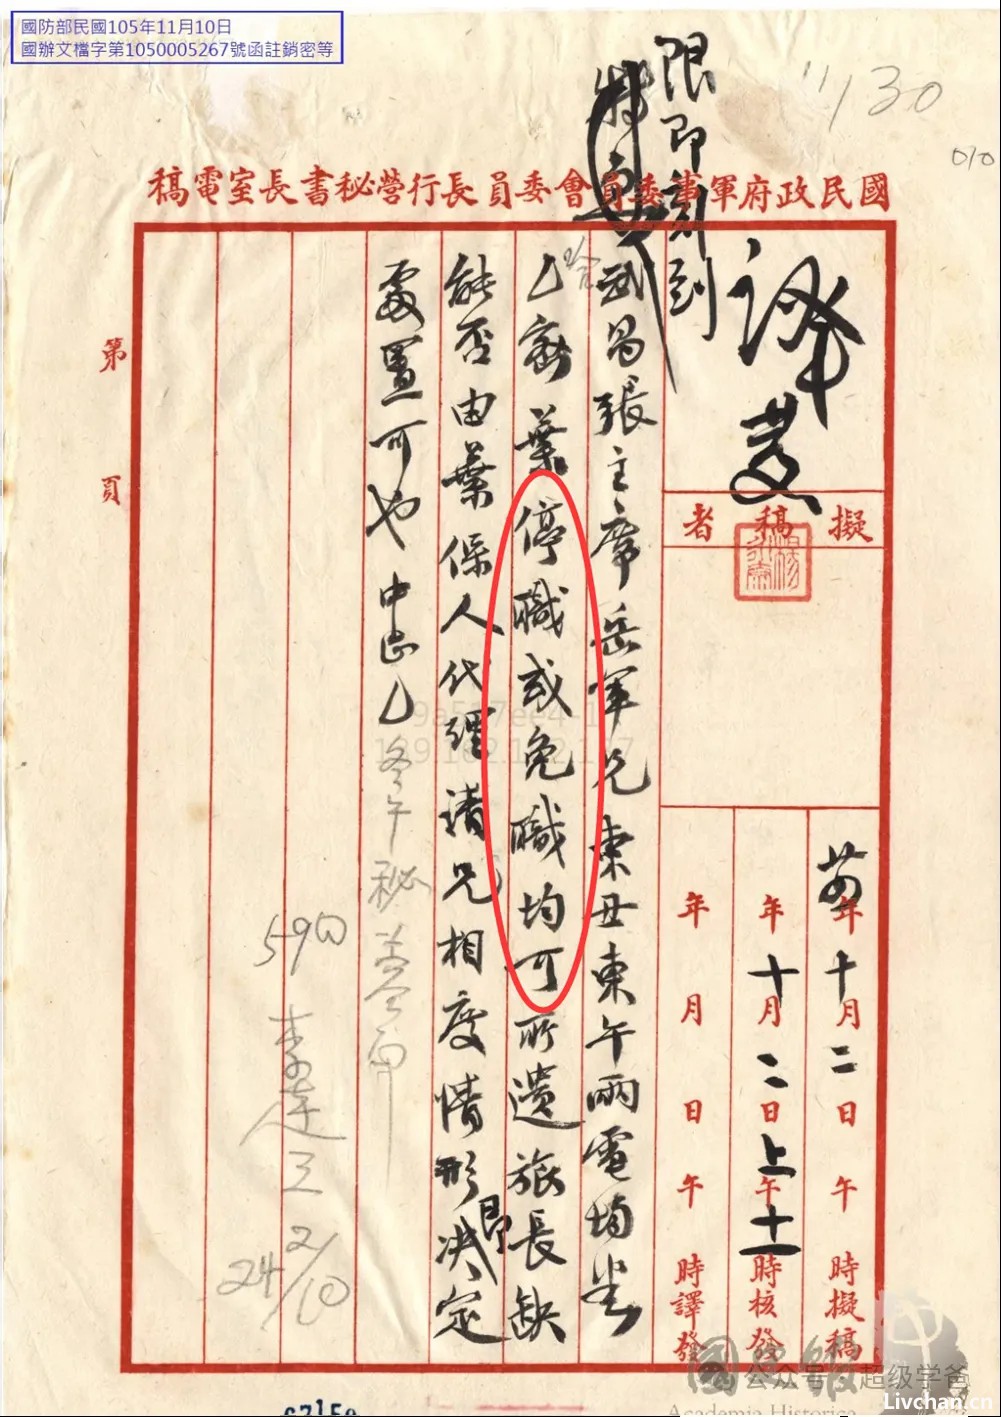 國防部民國105年11月10日
國辦文檔字第1050005267號函註銷密等
11/30
010
限即刻到
特急
國民政府軍事委員會委員長行營秘書長室電稿
譯發
擬稿者
年十月二日午時擬稿
年十月二日上午十一時核發
年月日午時譯發
武昌張主席岳軍兄東丑東午兩電均悉
乙密葉停職或免職均可所遺旅長缺
能否由葉保人代理請兄相度情形即決定
處置可也中正乙冬午秘蓉印
第頁
24 2/10
國史館
公众号·超级学爸
Academia Historica
Livchan.cn